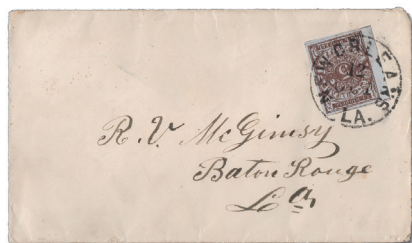 NEW ORLEANS
LA.
R. V. McGimsy
Baton Rouge
La